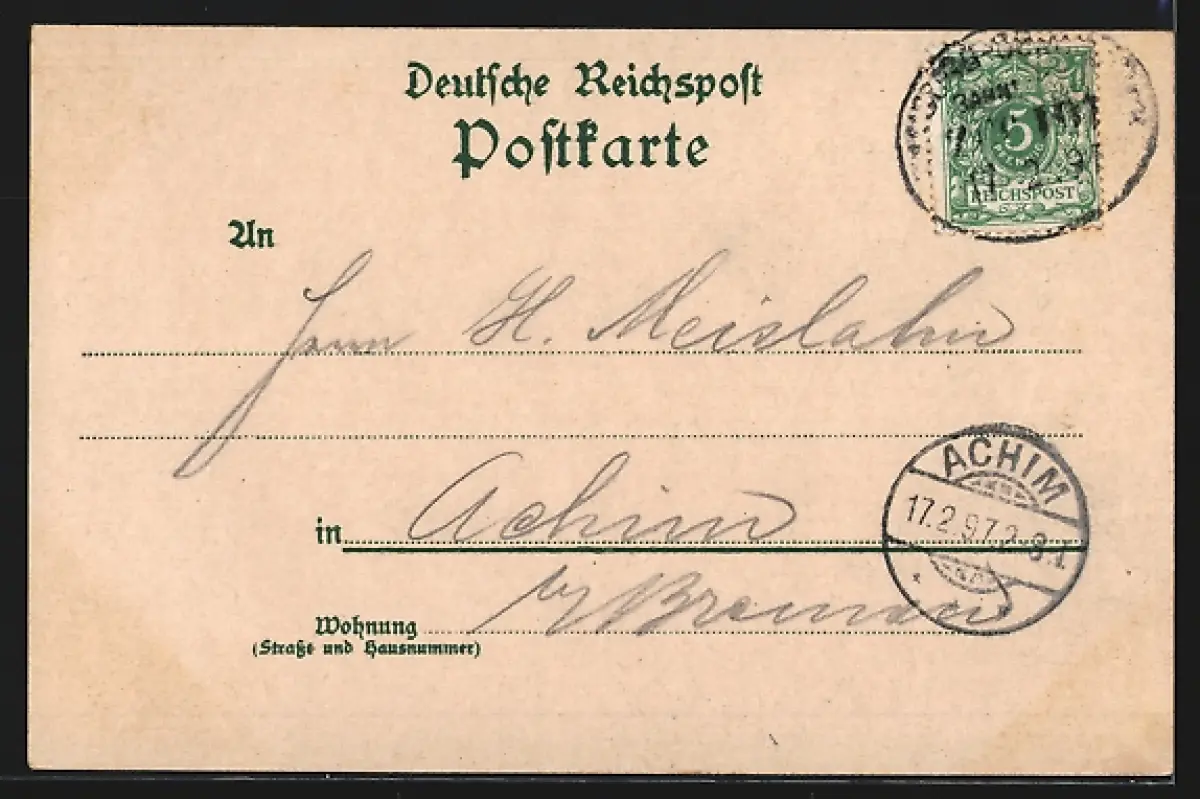 Deutsche Reichspost
Postkarte
5
PFENNIG
REICHSPOST
An
Herrn H. Meislahn
ACHIM
17.2.97.2-3.
in Achim
b/Bremen
Wohnung
(Straße und Hausnummer)